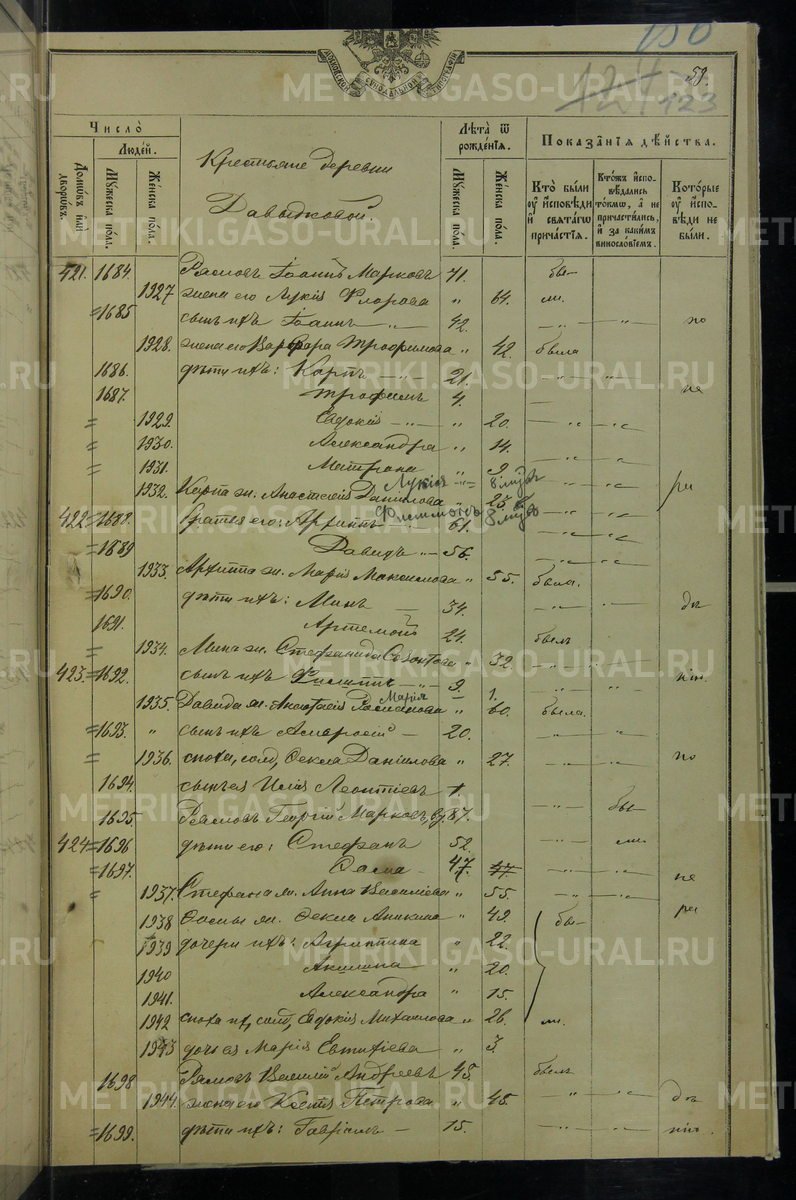 150
59.
124
123
МОСКОВСКОЙ СѴНОДАЛЬНОЙ ТИПОГРАФІИ
Число̀
Людей.
Домѡвъ или дворѡвъ.
Мꙋжеска пола.
Женска пола.
Крестьяне деревни
Давыдковой.
Лѣта ѿ рожденїѧ.
Мꙋжеска пола.
Женска пола.
Показанїѧ дѣйства.
Кто были ꙋ исповѣди и свѧтагѡ причастїѧ.
Ктожъ исповѣдались токмѡ, а не причастились, и за какимъ винословїемъ.
Которые ꙋ исповѣди не были.
421. 1684. Рямовъ Іоаннъ Марковъ 71. бы-
1927 жена его Лукія Флорова " 64. ли.
=1685 сынъ ихъ Іоаннъ - " - 42. - " - - " - по
1928. жена его Варвара Трофимова " 42. была
1686. дѣти ихъ: Карпъ - " - 21. - " - "
1687. Трофимъ 4. не
= 1929. Евдокія - " - " 20. - " - - " -
= 1930. Александра " 14. - " - - " -
= 1931. Матрона " 9 - " - - " -
Лукія - " = 8 мцъ
1932. Карпа ж. Анастасія Данилова " 23. - " - - " - ра
422 =1688. братья его: Архиппъ 61. - " - - " -
=1689 Давидъ " - 56. - " - - " -
1933. Архиппа ж. Марія Максимова " 55. была.
=1690. дѣти ихъ: Минъ — 34. - " - - " - дѣ
1691. Артемонъ 24. былъ
= 1934. Мина ж. Стефанида Созонтова " 32. - " - - " -
423. =1692. сынъ ихъ Филиппъ - " - 9. - " - - " - нію.
Марія — 1.
1935. Давида ж. Анастасія " 60. была.
=1693. " сынъ ихъ Амвросій - 20. - " - - " -
= 1936. сноха, солд, Ѳекла Данилова " 27. - " - - " - по
1694. сынъ ея Илія Леонтіевъ 1. - " - бы-
1695. Рямовъ Георгій Марковъ, вд. 87.
424. =1696 дѣти его: Стефанъ 52. - " - ли.
=1697. Савва 47. 47. - " - - " - не
= 1937. Стефана ж. Анна Василіева " 55. - " - - " -
1938 Саввы ж. Ѳекла Аникина " 49. бы- ра
1939 дочери ихъ: Агриппина " 22.
1940 Акилина " 20.
1941. Александра " 15.
1942 сноха их, солд, Евдокія Михаилова " 26. ли.
1943 дочь ея Марія Евтихіева " 3.
1698 Рямовъ Василій Андреевъ 48. былъ
1944. жена его Ксенія Петрова " 48. - " - - " - дѣ
=1699. дѣти ихъ: Гавріилъ - 15. - " - - " - нію.
METRIKI.GASO-URAL.RU